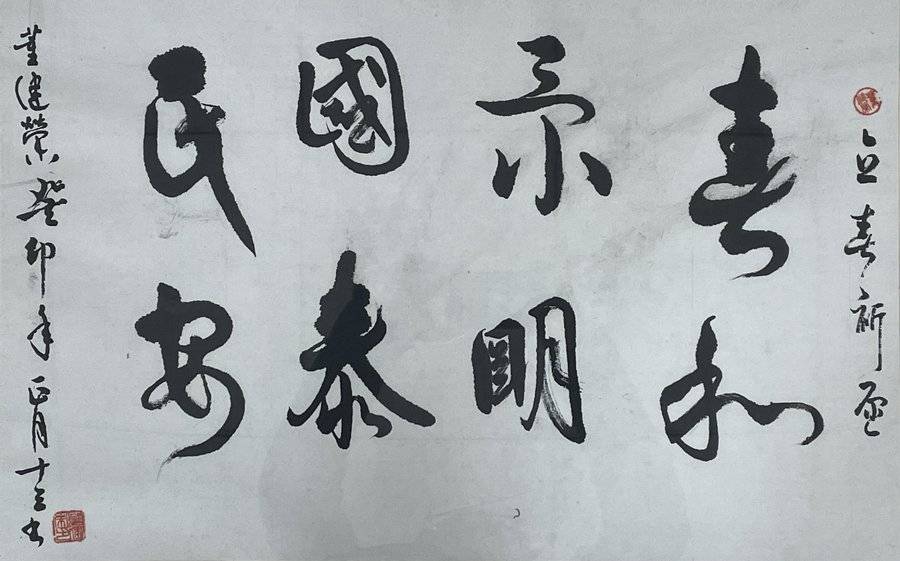 立春祈
春和
景明
國泰
民安
董健榮癸卯年正月十三书